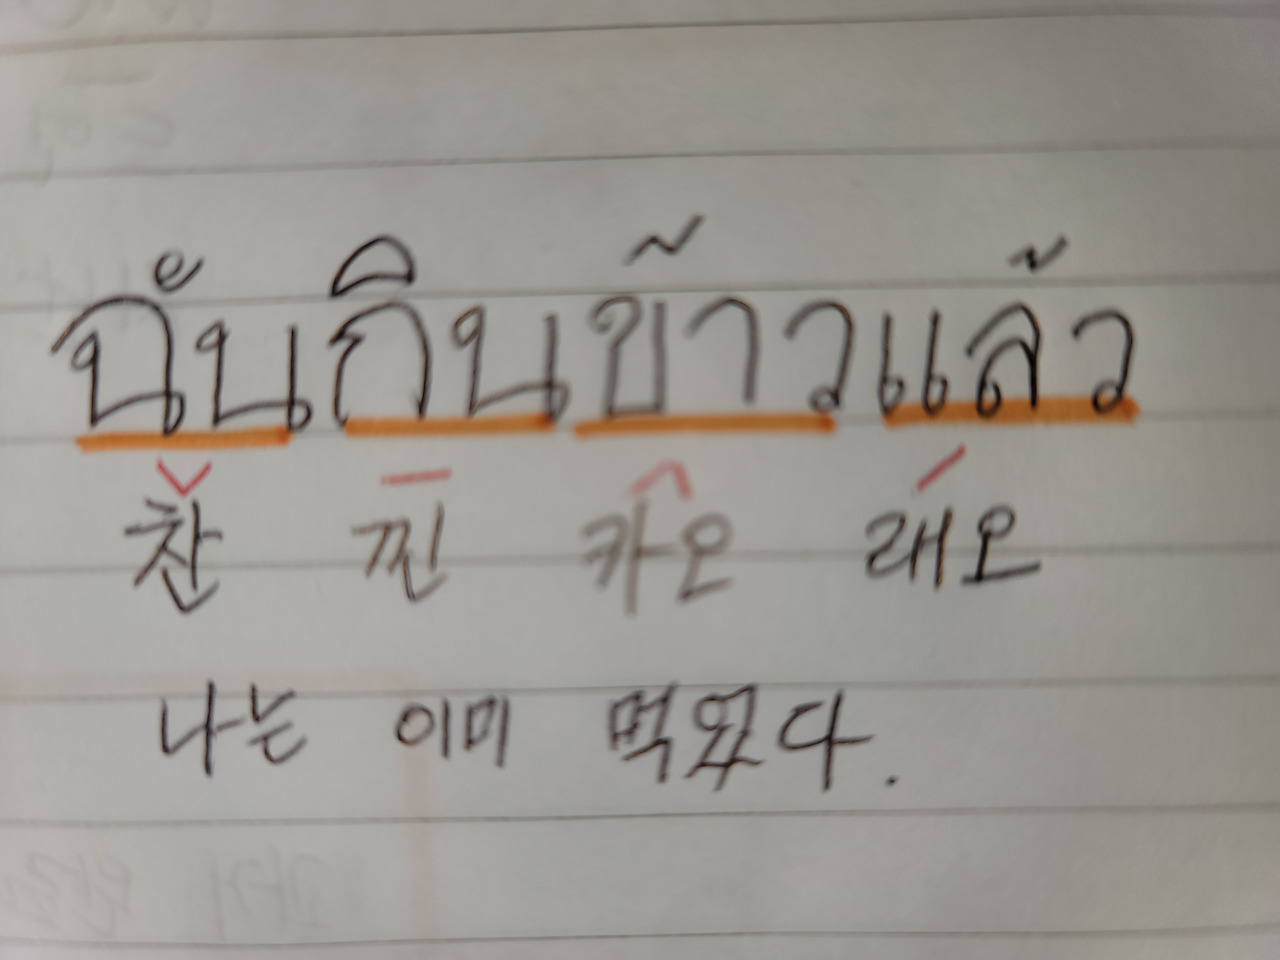 ฉันกินข้าวแล้ว
찬 낀 카오 래오
나는 이미 먹었다.